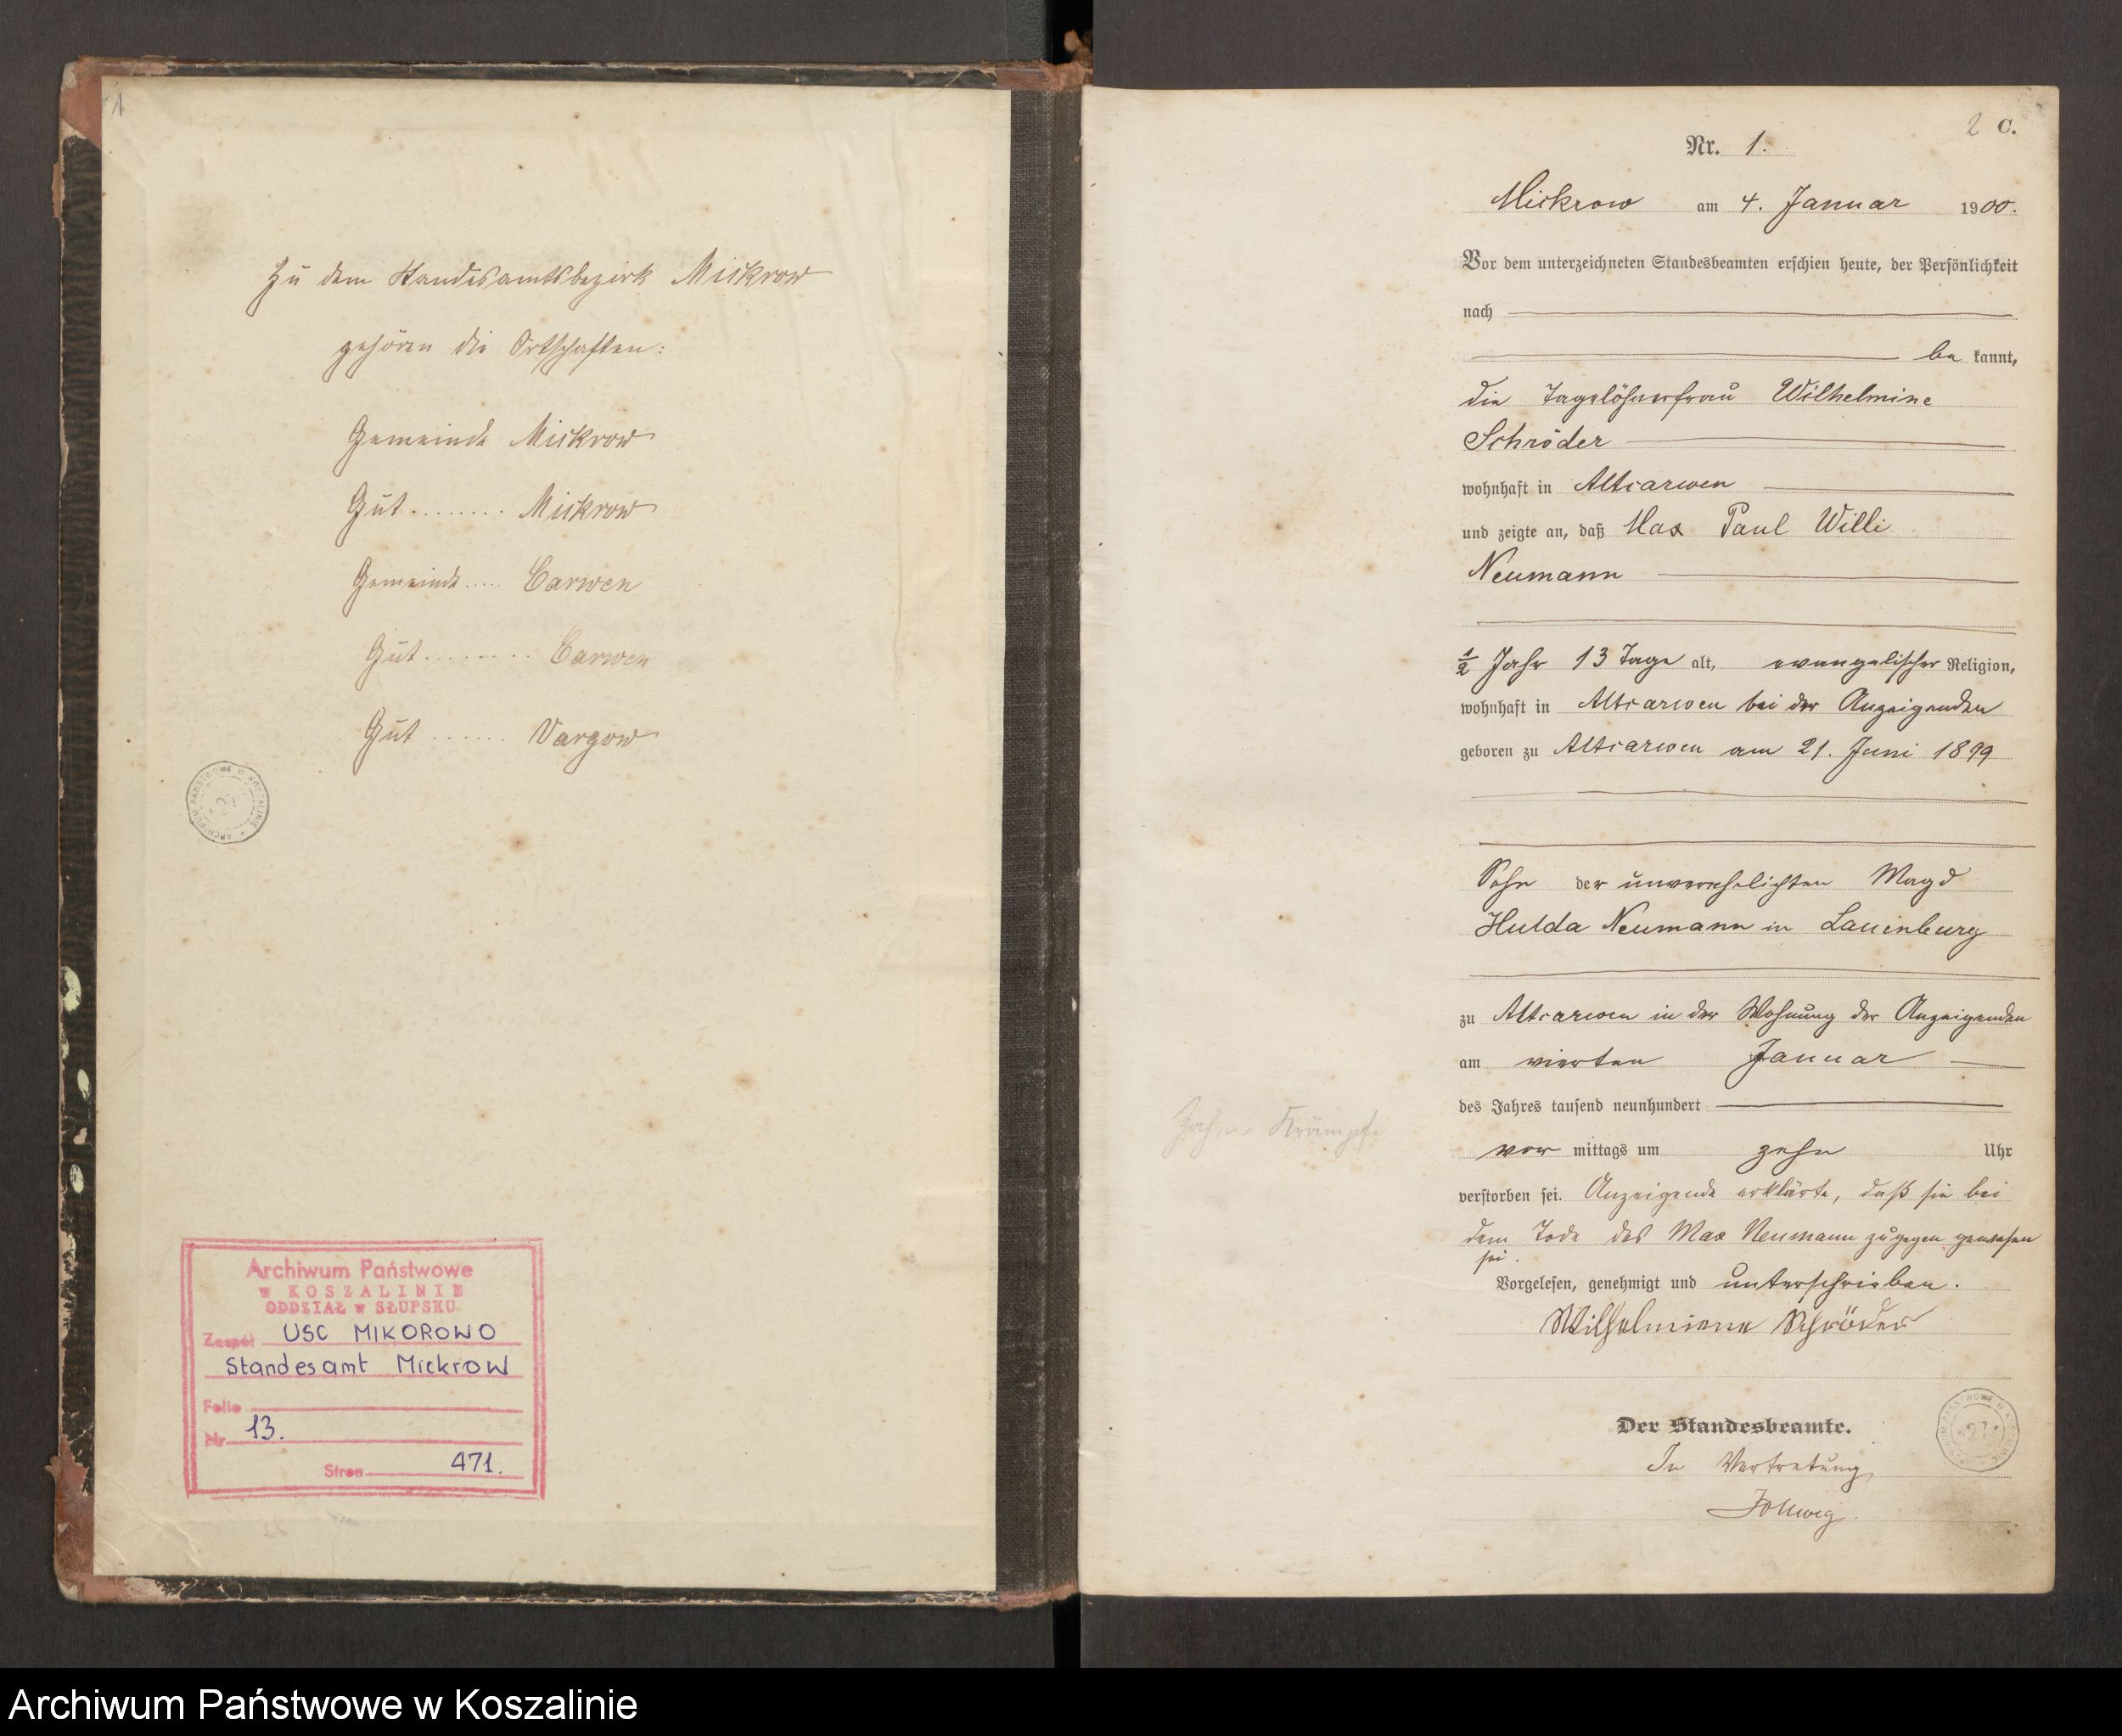 1
Zu dem Standesamtsbezirk Mickrow
gehören die Ortschaften:
Gemeinde Mickrow
Gut ........ Mickrow
Gemeinde ..... Carwen
Gut ........ Carwen
Gut ...... Vargow
ARCHIWUM PAŃSTWOWE W KOSZALINIE
27
Archiwum Państwowe
w KOSZALINIE
ODDZIAŁ w SŁUPSKU
Zespół USC MIKOROWO
Standesamt Mickrow
Folio
Nr 13.
Stron 471.
2 C.
Nr. 1.
Mickrow am 4. Januar 1900.
Vor dem unterzeichneten Standesbeamten erschien heute, der Persönlichkeit
nach
be kannt,
die Tagelöhnerfrau Wilhelmine
Schröder
wohnhaft in Altcarwen
und zeigte an, daß Max Paul Willi
Neumann
½ Jahr 13 Tage alt, evangelischer Religion,
wohnhaft in Altcarwen bei der Anzeigenden
geboren zu Altcarwen am 21. Juni 1899
Sohn der unverehelichten Magd
Hulda Neumann in Lauenburg
zu Altcarwen in der Wohnung der Anzeigenden
am vierten Januar
des Jahres tausend neunhundert
Zahn-Krämpfe
vor mittags um zehn Uhr
verstorben sei. Anzeigende erklärte, daß sie bei
dem Tode des Max Neumann zugegen gewesen
sei.
Vorgelesen, genehmigt und unterschrieben.
Wilhelmiene Schröder
Der Standesbeamte.
In Vertretung
27
Archiwum Państwowe w Koszalinie